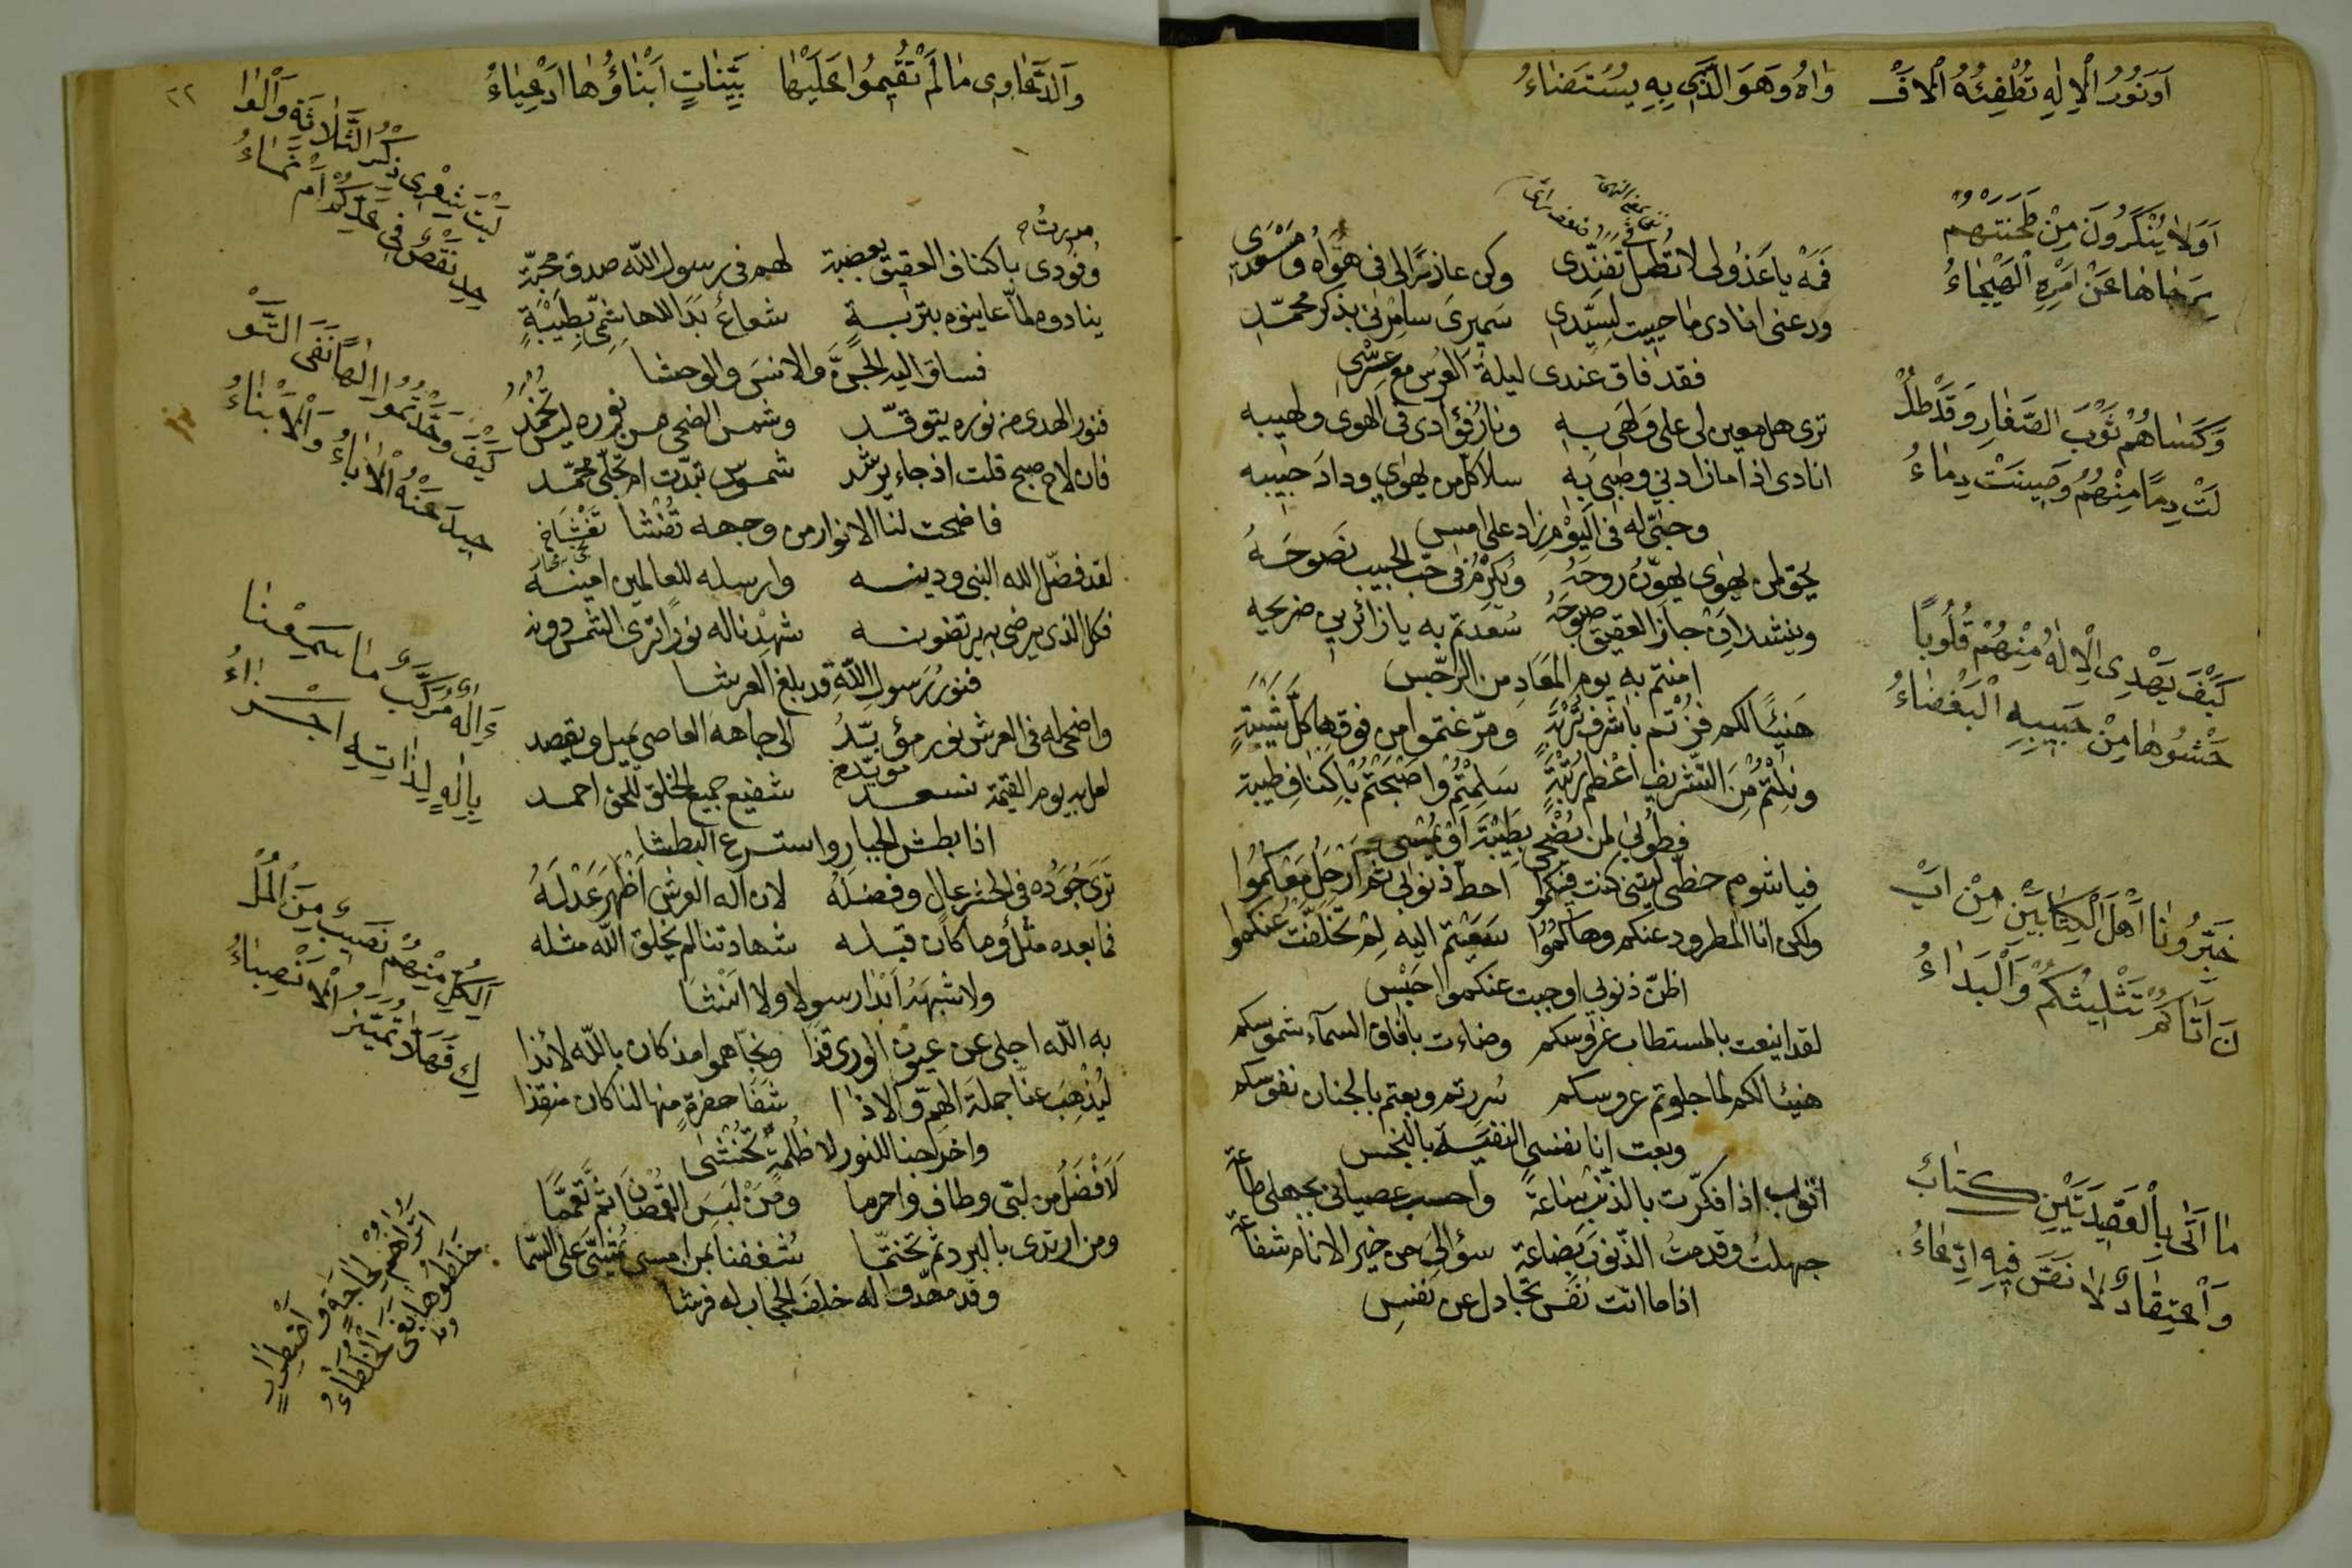 اَوَنُورُ الْاِلٰهِ تُطْفِئُهُ الْاَفْ وَاهُ وَهَوَ الَّذِي بِهِ يُسْتَضَاءُ
اَوَلَا يُنْكَرُونَ مِنْ طَحَنَتْهُمْ
بِرَحَاهَا عَنْ اَمْرِهِ الْهَيْجَاءُ
وَكَسَاهُمْ ثَوْبَ الصَّغَارِ وَقَدْ طُلْ
لَتْ دِمًا مِنْهُمُ وَصِينَتْ دِمَاءُ
كَيْفَ يَهْدِى الْاِلٰهُ مِنْهُمْ قُلُوبًا
حَشْوُهَا مِنْ حَبِيبِهِ الْبَغْضَاءُ
خَبِّرُونَا اَهْلَ الْكِتَابَيْنِ مِنْ اَيْ
نَ اَتَاكُمْ تَثْلِيثُكُمْ وَالْبَدَاءُ
مَا اَتَى بِالْعَقِيدَتَيْنِ كِتَابٌ
وَاعْتِقَادٌ لَا نَصَّ فِيهِ ادِّعَاءُ
فَمَهْ يا عَذُولى لا تُطِلْ تُفَنِّدى وكن عاذرًا لى فى هَوَاهُ
ودعنى انادى ما حييت لِسَيِّدِى سَمِيرىَ سامِرْنى بذكر محمّد
فقد فاق عندى ليلةَ العُرس مع عِرْسِى
ترى هل معين لى على وَلَهى به ونار فؤادى فى الهوى ولهيبه
انادى اذا ما زاد بى وطبى به سلا كلّ من يهوى وداد حبيبه
وحبّى له فى الْيَوْمِ زاد على امس
يحق لمن يهوى يهوّن روحَهُ وَيُكْرِمُ فى حُبّ الحبيب نصوحَهُ
وينشد اِنْ جازَ العقيق صُوحَهُ سُعدتم به يا زائرين ضريحه
امنتم به يوم المَعَادِ من الرّجس
هَنِيئًا لكم فزتم باشرف تُرْبَةٍ
ونِلْتُمْ مِنَ التّشريف اعْظمَ رُتْبَةٍ سَلِمْتُمْ وَاَصْبَحْتُمْ بِاَكْنَافِ طَيْبَةِ
فطُوبى لمن يُضْحى بِطَيْبَةَ اَوْ يُمْسِى
فيا شوم حظّى ليتنى كنت فيكموا احطّ ذنوبى ثم ارْحَلُ مَعْكُمُوا
ولكن انا المطرود عنكم وهاكُمُوا سَعَيْتم اليه لِمْ تَخَلَّفْتُ عنكموا
اظنّ ذنوبى اوجبت عنكموا حَبْسِى
لقد اينعت بالمستطاب غروسكم وضاءت بافاق السمآء شموسكم
هنيئا لكم لما جلوتم عروسكم سُررتم وبعتم بالجنان نفوسكم
وبعت انا نفسى النفيسَة بالبَخس
اتوب اذا فكّرت بالذّنب ساعَةً واحسب عصيانى بجهلى طاعة
جهلتُ وقدمتُ الذّنوبَ بِضاعَة سؤالىَ من خير الانام شفاعة
اذا ما اتت نفس تجادل عن نفسِ
٢٢
وَالدَّعَاوِى مَا لَمْ تُقِيمُوا عَلَيْهَا بَيِّنَاتٍ اَبْنَاؤُهَا اَدْعِيَاءُ
لَيْتَ شِعْرِى ذِكْرُ الثَّلَاثَةِ وَالْوَا
حِدِ نَقْصٌ فِى عَدِّكُمْ اَمْ نَمَاءُ
كَيْفَ وَحَّدْتُمُوا اِلٰهًا نَفَى التَّوْ
حِيدَ عَنْهُ الْاٰبَاءُ وَالْاَبْنَاءُ
ءَاِلٰهٌ مُرَكَّبٌ مَا سَمِعْنَا
بِاِلٰهٍ لِذَاتِهِ اَجْزَاءُ
اَلِكُلٍّ مِنْهُمْ نَصِيبٌ مِنَ الْمُلْ
كِ فَهَلَّا تُمَيَّزُ الْاَنْصِبَاءُ
اَتُرَاهُمْ لِحَاجَةٍ وَاضْطِرَارٍ
خَلَطُوهَا وَمَا بَغَى الْخُلَطَاءُ
ونُودى باكناف العقيق بعُصْبَة لهم فى رسول الله صدق محبّة
ينادوه لمّا عاينوه بتربةٍ شعاعٌ بَدَا للهاشِمِىّ بِطَيْبَةٍ
فساق اليه الجنَّ والانسَ والوحشا
فنور الهدى من نوره يتوقّد وشمس الضحى من نوره ليس تخمد
فان لاح صبح قلت اذ جاء يرشد شموس تبدّت ام تجلّى محمّد
فاضحت لنا الانوار من وجهه تُفْشَا
لقد فضّل الله النبى ودينه وارسله للعالمين امينه
فكل الذى يرضى به يرتضونه شهدنا له نورًا ترى الشمس دونه
فنور رَسولِ اللهِ قد بلغ العرشا
واضحى له فى العرش نور مؤيّدُ الى جاهه العاصى يميل ويقصد
لعل به يوم القيٰمة نسعد شفيع جميع الخلق للحق احمد
اذا بطش الجبار واسترع البطشا
تَرَى جُودَه فى الحشر عال وفضلَهُ لان اله العرش اَظْهَرَ عَدْلَهُ
فما بعده مثلٌ وما كان قبله شهادتنا لم يخلق الله مثله
ولا شبهَهُ اَبْدا رسولا ولا اَنْشَا
به الله اجلى عن عيون الورى قذا ونجّاهموا مذ كان بالله لائذا
ليُذْهِبَ عنّا جملةَ الهمّ والاذا شَفَا حفرةٍ منها لنا كان منقذا
واخرجنا للنور لا ظلمةً تُخْشَى
لَاَفْضَلُ من لبّى وطاف واحرما ومَنْ لبس القمصَانَ ثمَّ تعمّما
ومن ارتدى بالبرد ثم تختّما شُغفنا بمن امسى يمشّى على السّما
وقد مهّد والله خلف الحجاب له فرشا